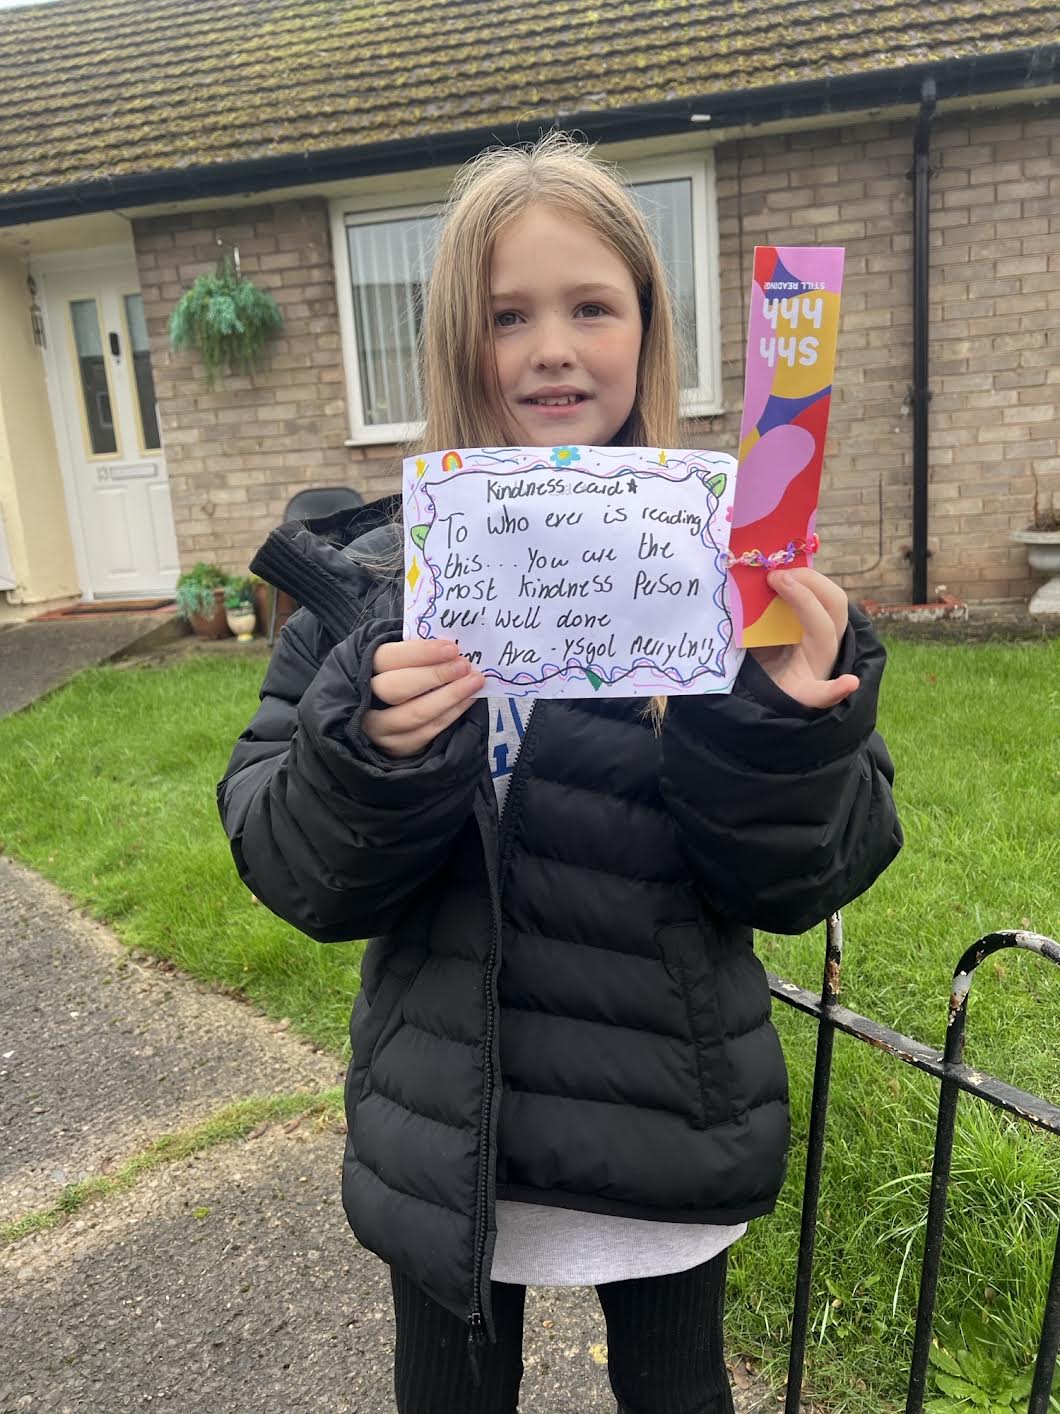 Kindness card
To who ever is reading
this... You are the
most kindness Person
ever! Well done
Ava - Ysgol
Shh
hhh
STILL READING!
A